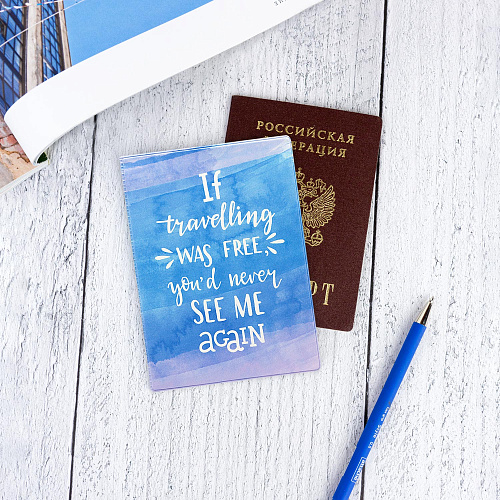 РОССИЙСКАЯ
ФЕДЕРАЦИЯ
If
travelling
WAS FREE,
you'd never
SEE ME
AGAIN